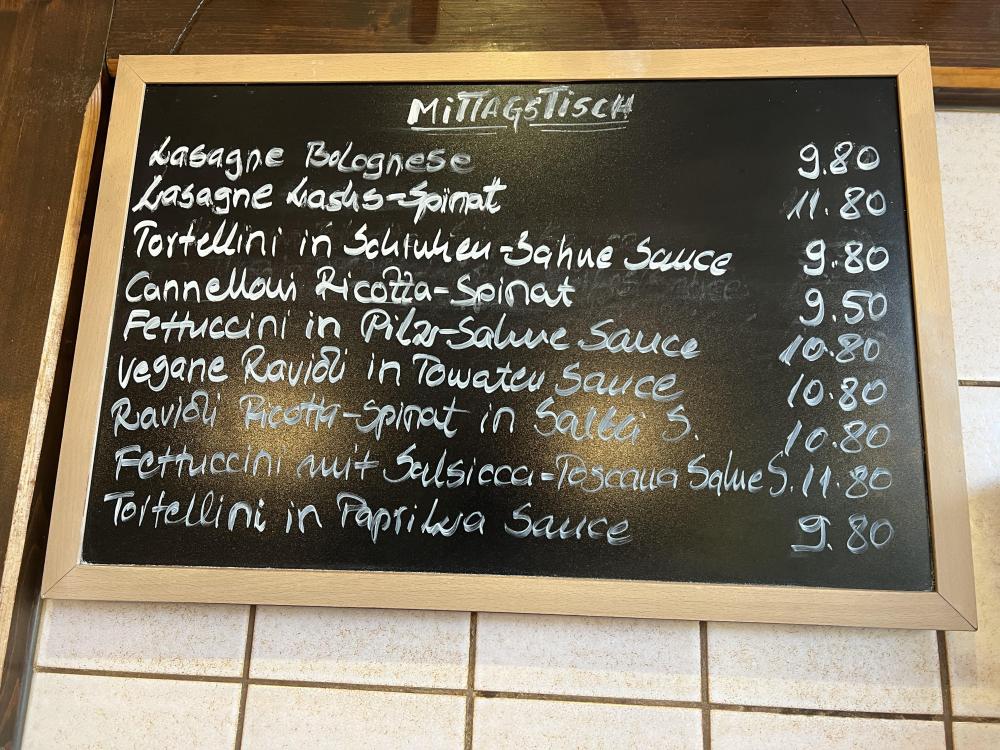 MITTAGSTISCH
Lasagne Bolognese 9.80
Lasagne Lachs-Spinat 11.80
Tortellini in Schinken-Sahne Sauce 9.80
Cannelloni Ricotta-Spinat 9.50
Fettuccini in Pilz-Sahne Sauce 10.80
vegane Ravioli in Tomaten Sauce 10.80
Ravioli Ricotta-Spinat in Salbei S. 10.80
Fettuccini mit Salsicca-Toscana Sahne S. 11.80
Tortellini in Paprika Sauce 9.80